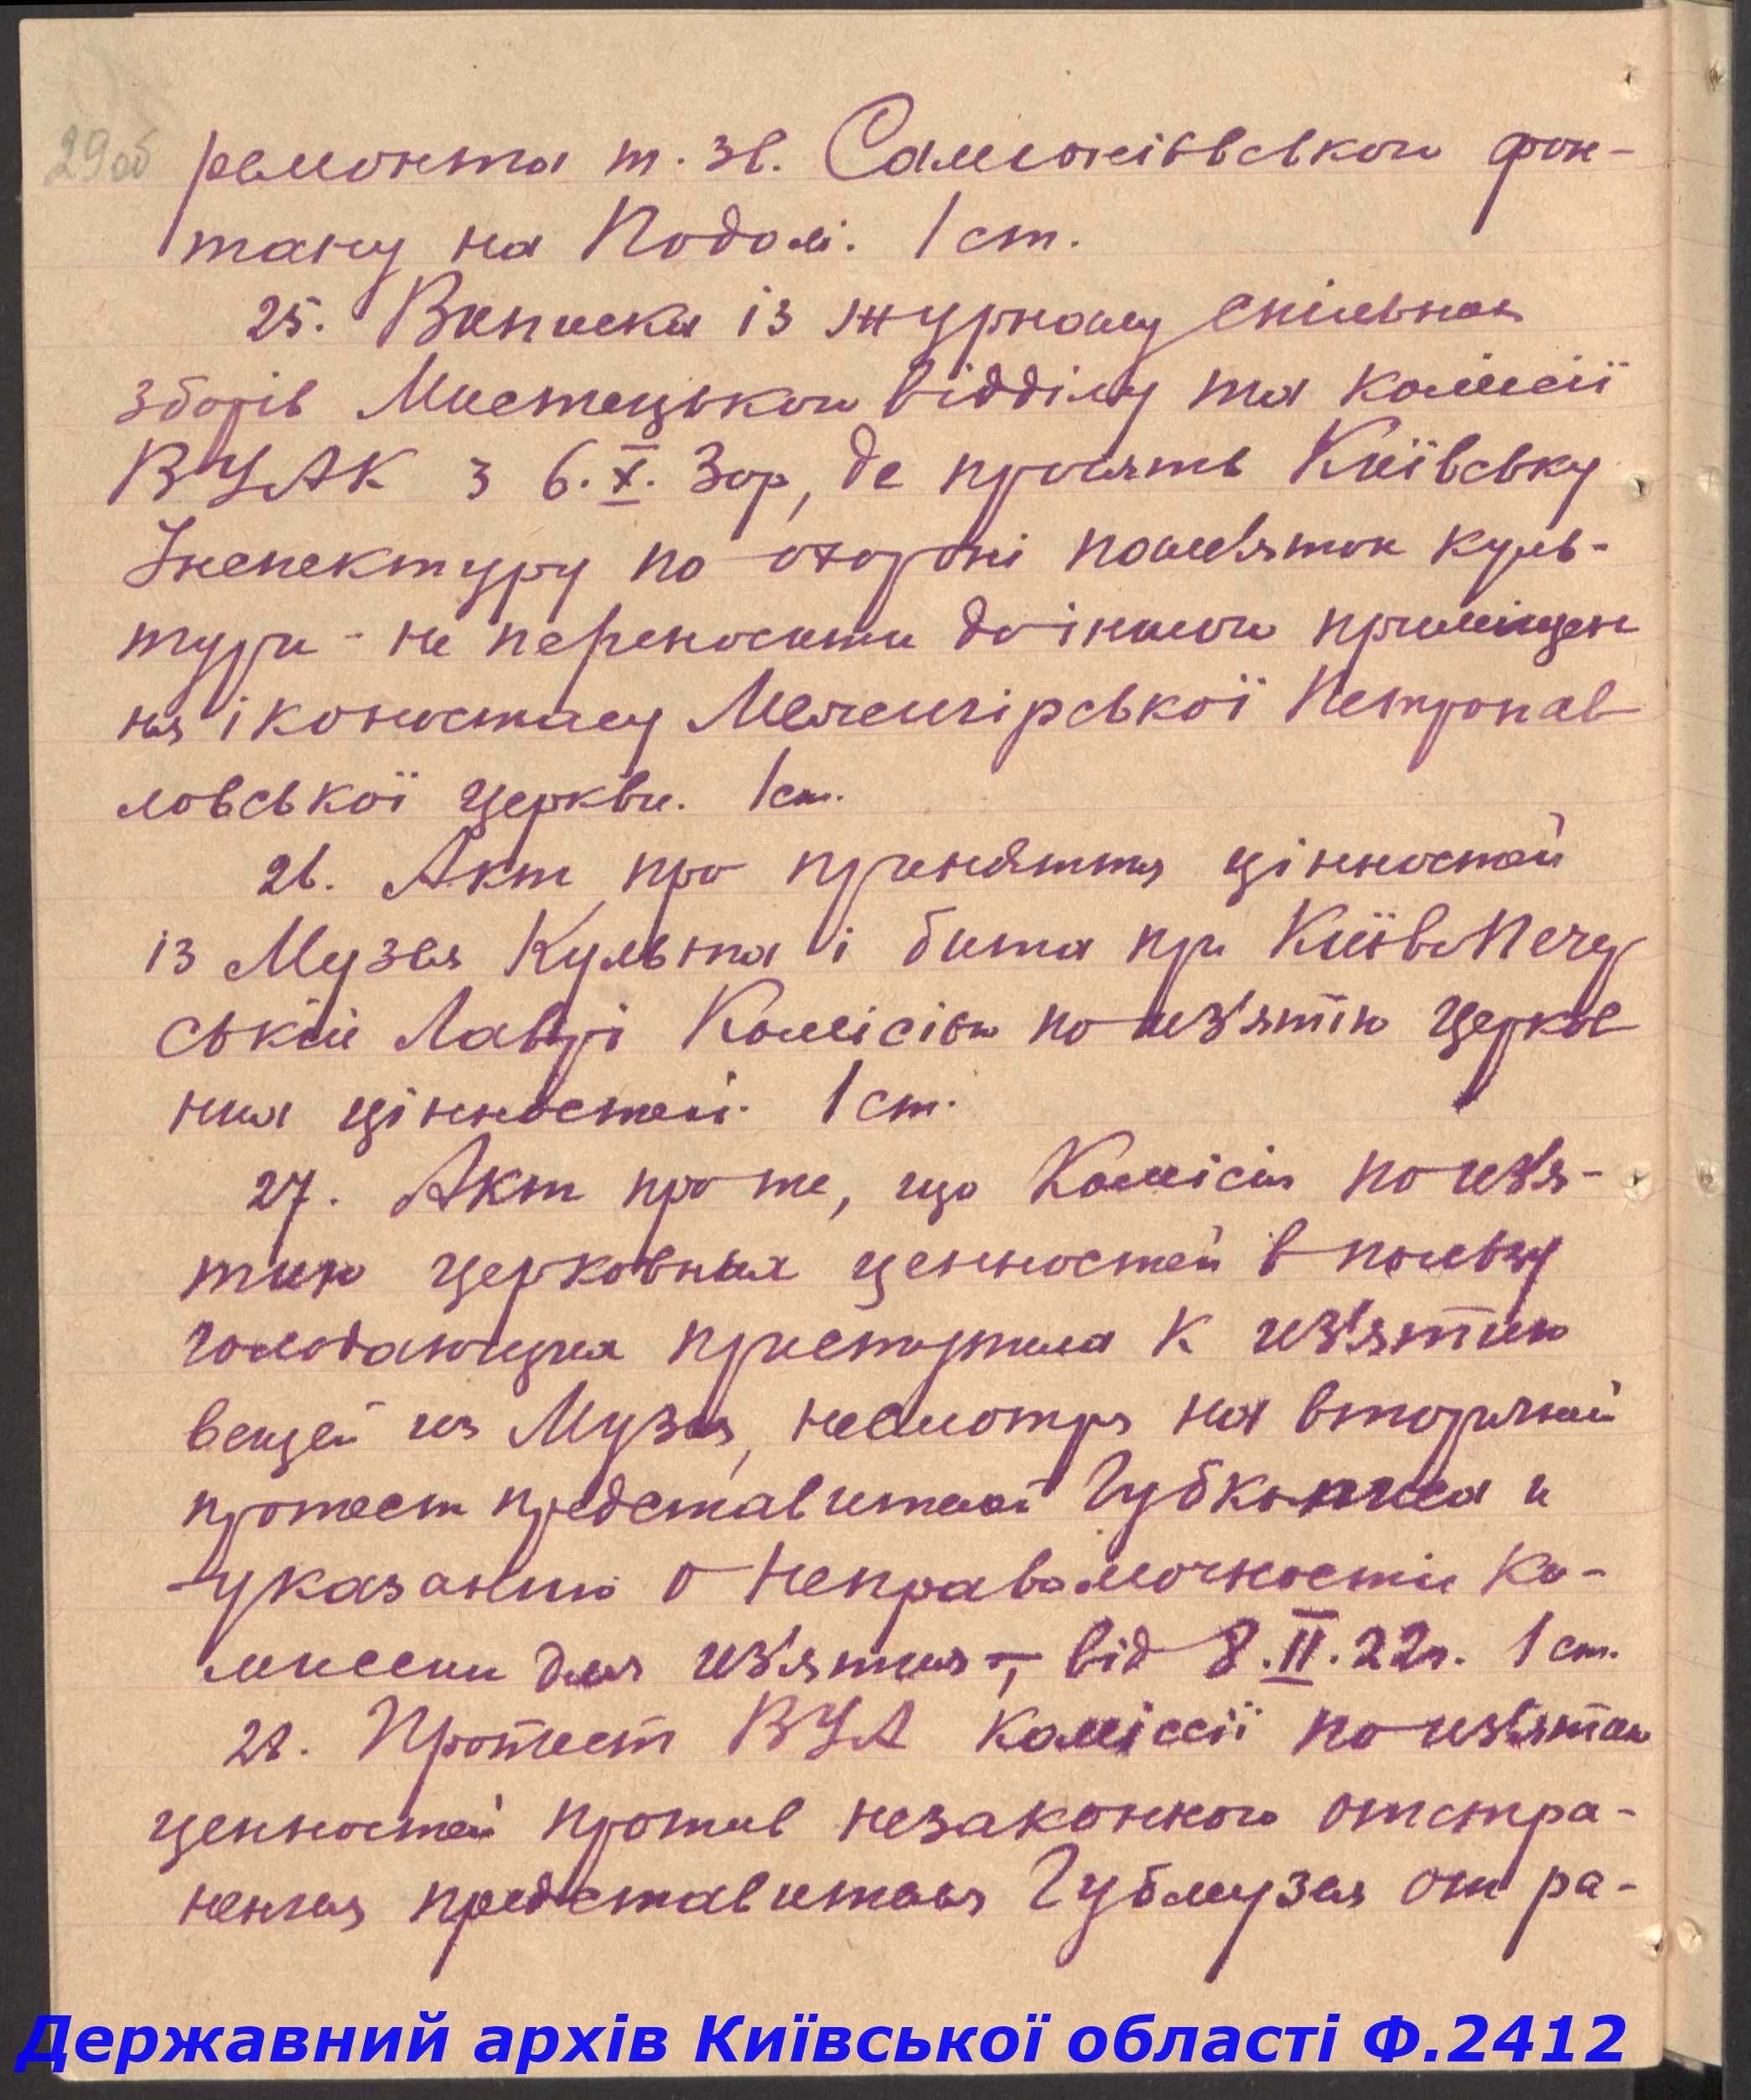 29об
ремонта т. зв. Самсонівського фон-
тану на Подолі. 1 ст.
25. Виписка із журналу спільних
зборів Мистецького відділу та комісії
ВУАК з 6.X.30р, де просять Київську
Інспектуру по охороні памʼяток куль-
тури - не переносити до іншого приміщен
ня іконостасу Межигірської Петропав
ловської церкви. 1 ст.
26. Акт про приняття цінностей
із Музея Культа і быта при Київо Печер
ській Лаврі Комісією по изʼятію церков
них цінностей. 1 ст.
27. Акт про те, що Комісія по изʼя-
тию церковных ценностей в пользу
голодающих приступила к изʼятию
вещей из Музея, несмотря на вторичный
протест представителей Губкописа и
указанию о неправомочности Ко-
миссии для изʼятия -, від 8.II.22г. 1 ст.
28. Протест ВУА комісcії по изʼятию
ценностей против незаконного отстра-
нения представителя Губмузея от ра-
Державний архів Київської області Ф.2412